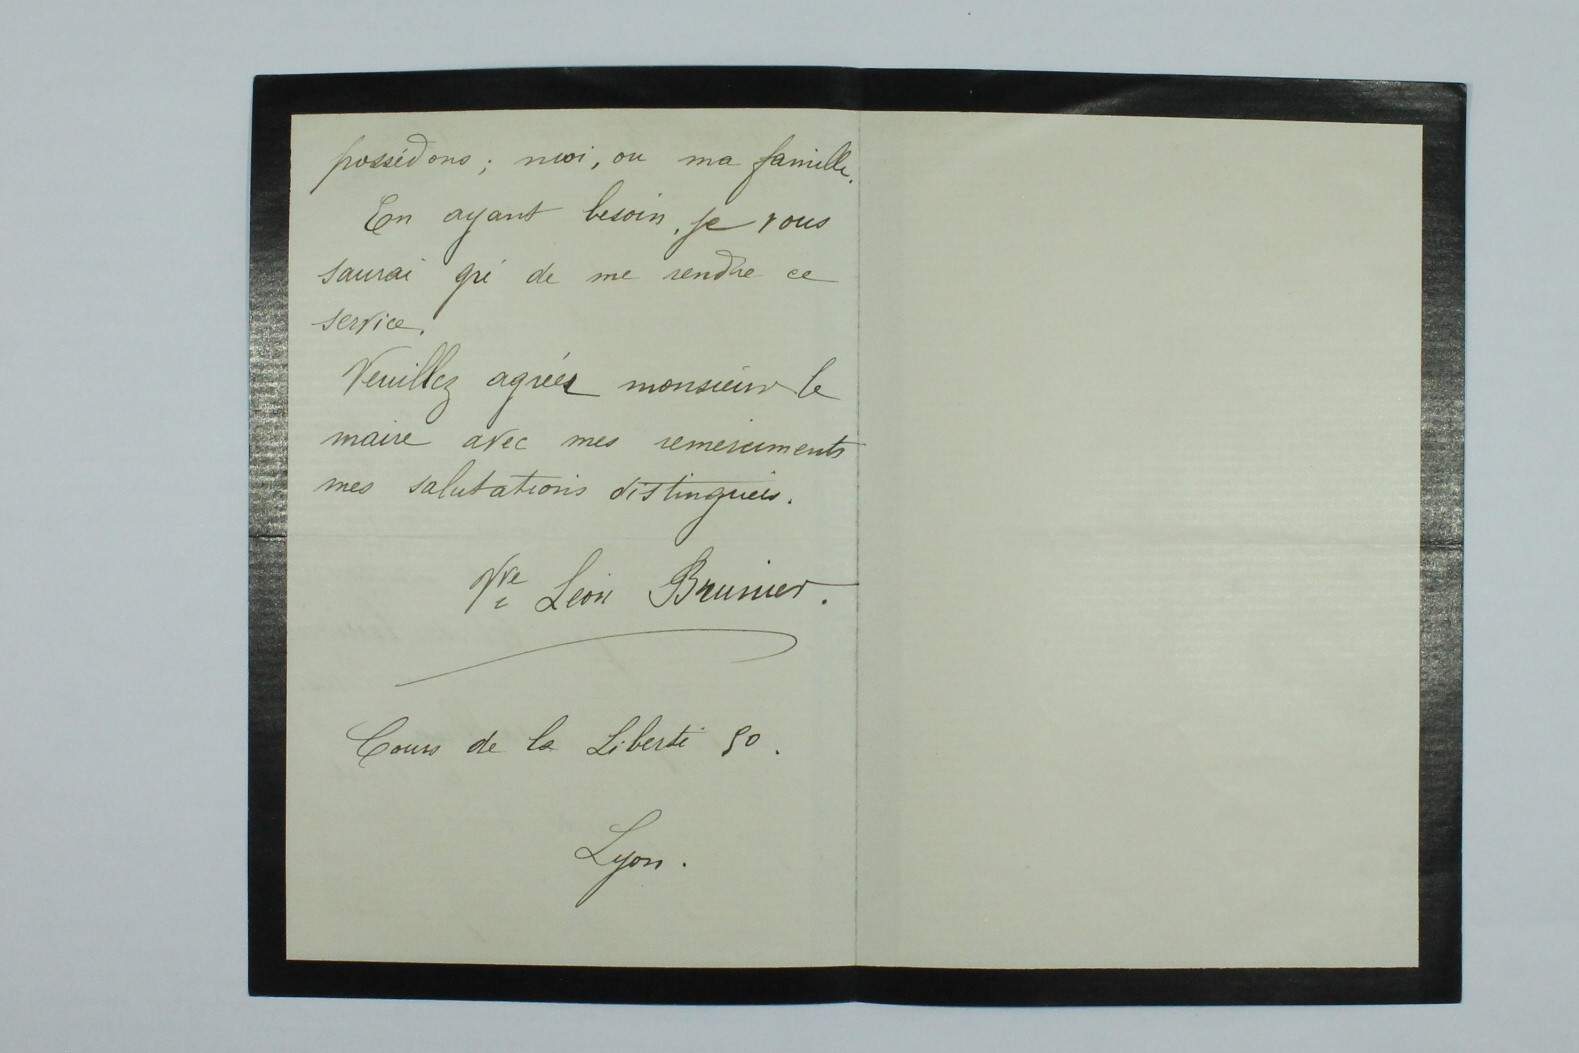 possédons ; moi, ou ma famille.
En ayant besoin, je vous
saurai gré de me rendre ce
service.
Veuillez agréer monsieur le
maire avec mes remerciments
mes salutations distinguées.
Vve Léon Brunier.
Cours de la Liberté 50.
Lyon.